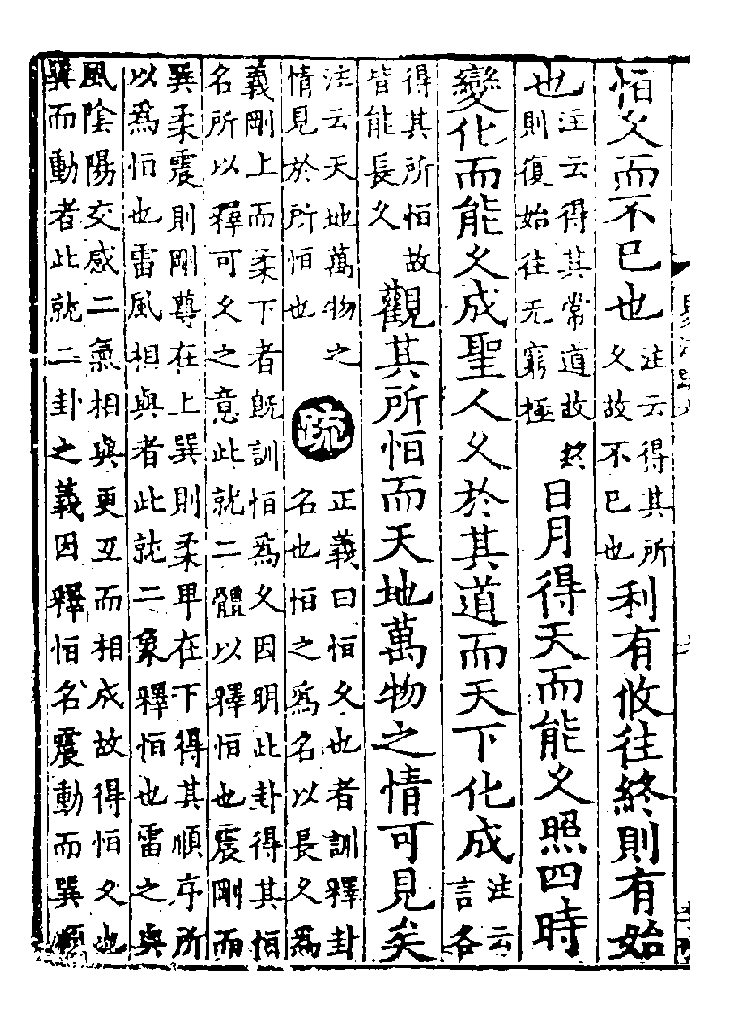 恒久而不已也注云得其所
久故不已也利有攸往終則有始
也注云得其常道故終
則復始往无窮極日月得天而能久照四時
變化而能久成聖人久於其道而天下化成注云
言各
得其所恒故
皆能長久觀其所恒而天地萬物之情可見矣
注云天地萬物之
情見於所恒也疏正義曰恒久也者訓釋卦
名也恒之爲名以長久爲
義剛上而柔下者旣訓恒爲久因明此卦得其恒
名所以釋可久之意此就二體以釋恒也震剛而
巽柔震則剛尊在上巽則柔卑在下得其順序所
以爲恒也雷風相與者此就二象釋恒也雷之與
風陰陽交感二氣相與更互而相成故得恒久也
巽而動者此就二卦之義因釋恒名震動而巽順